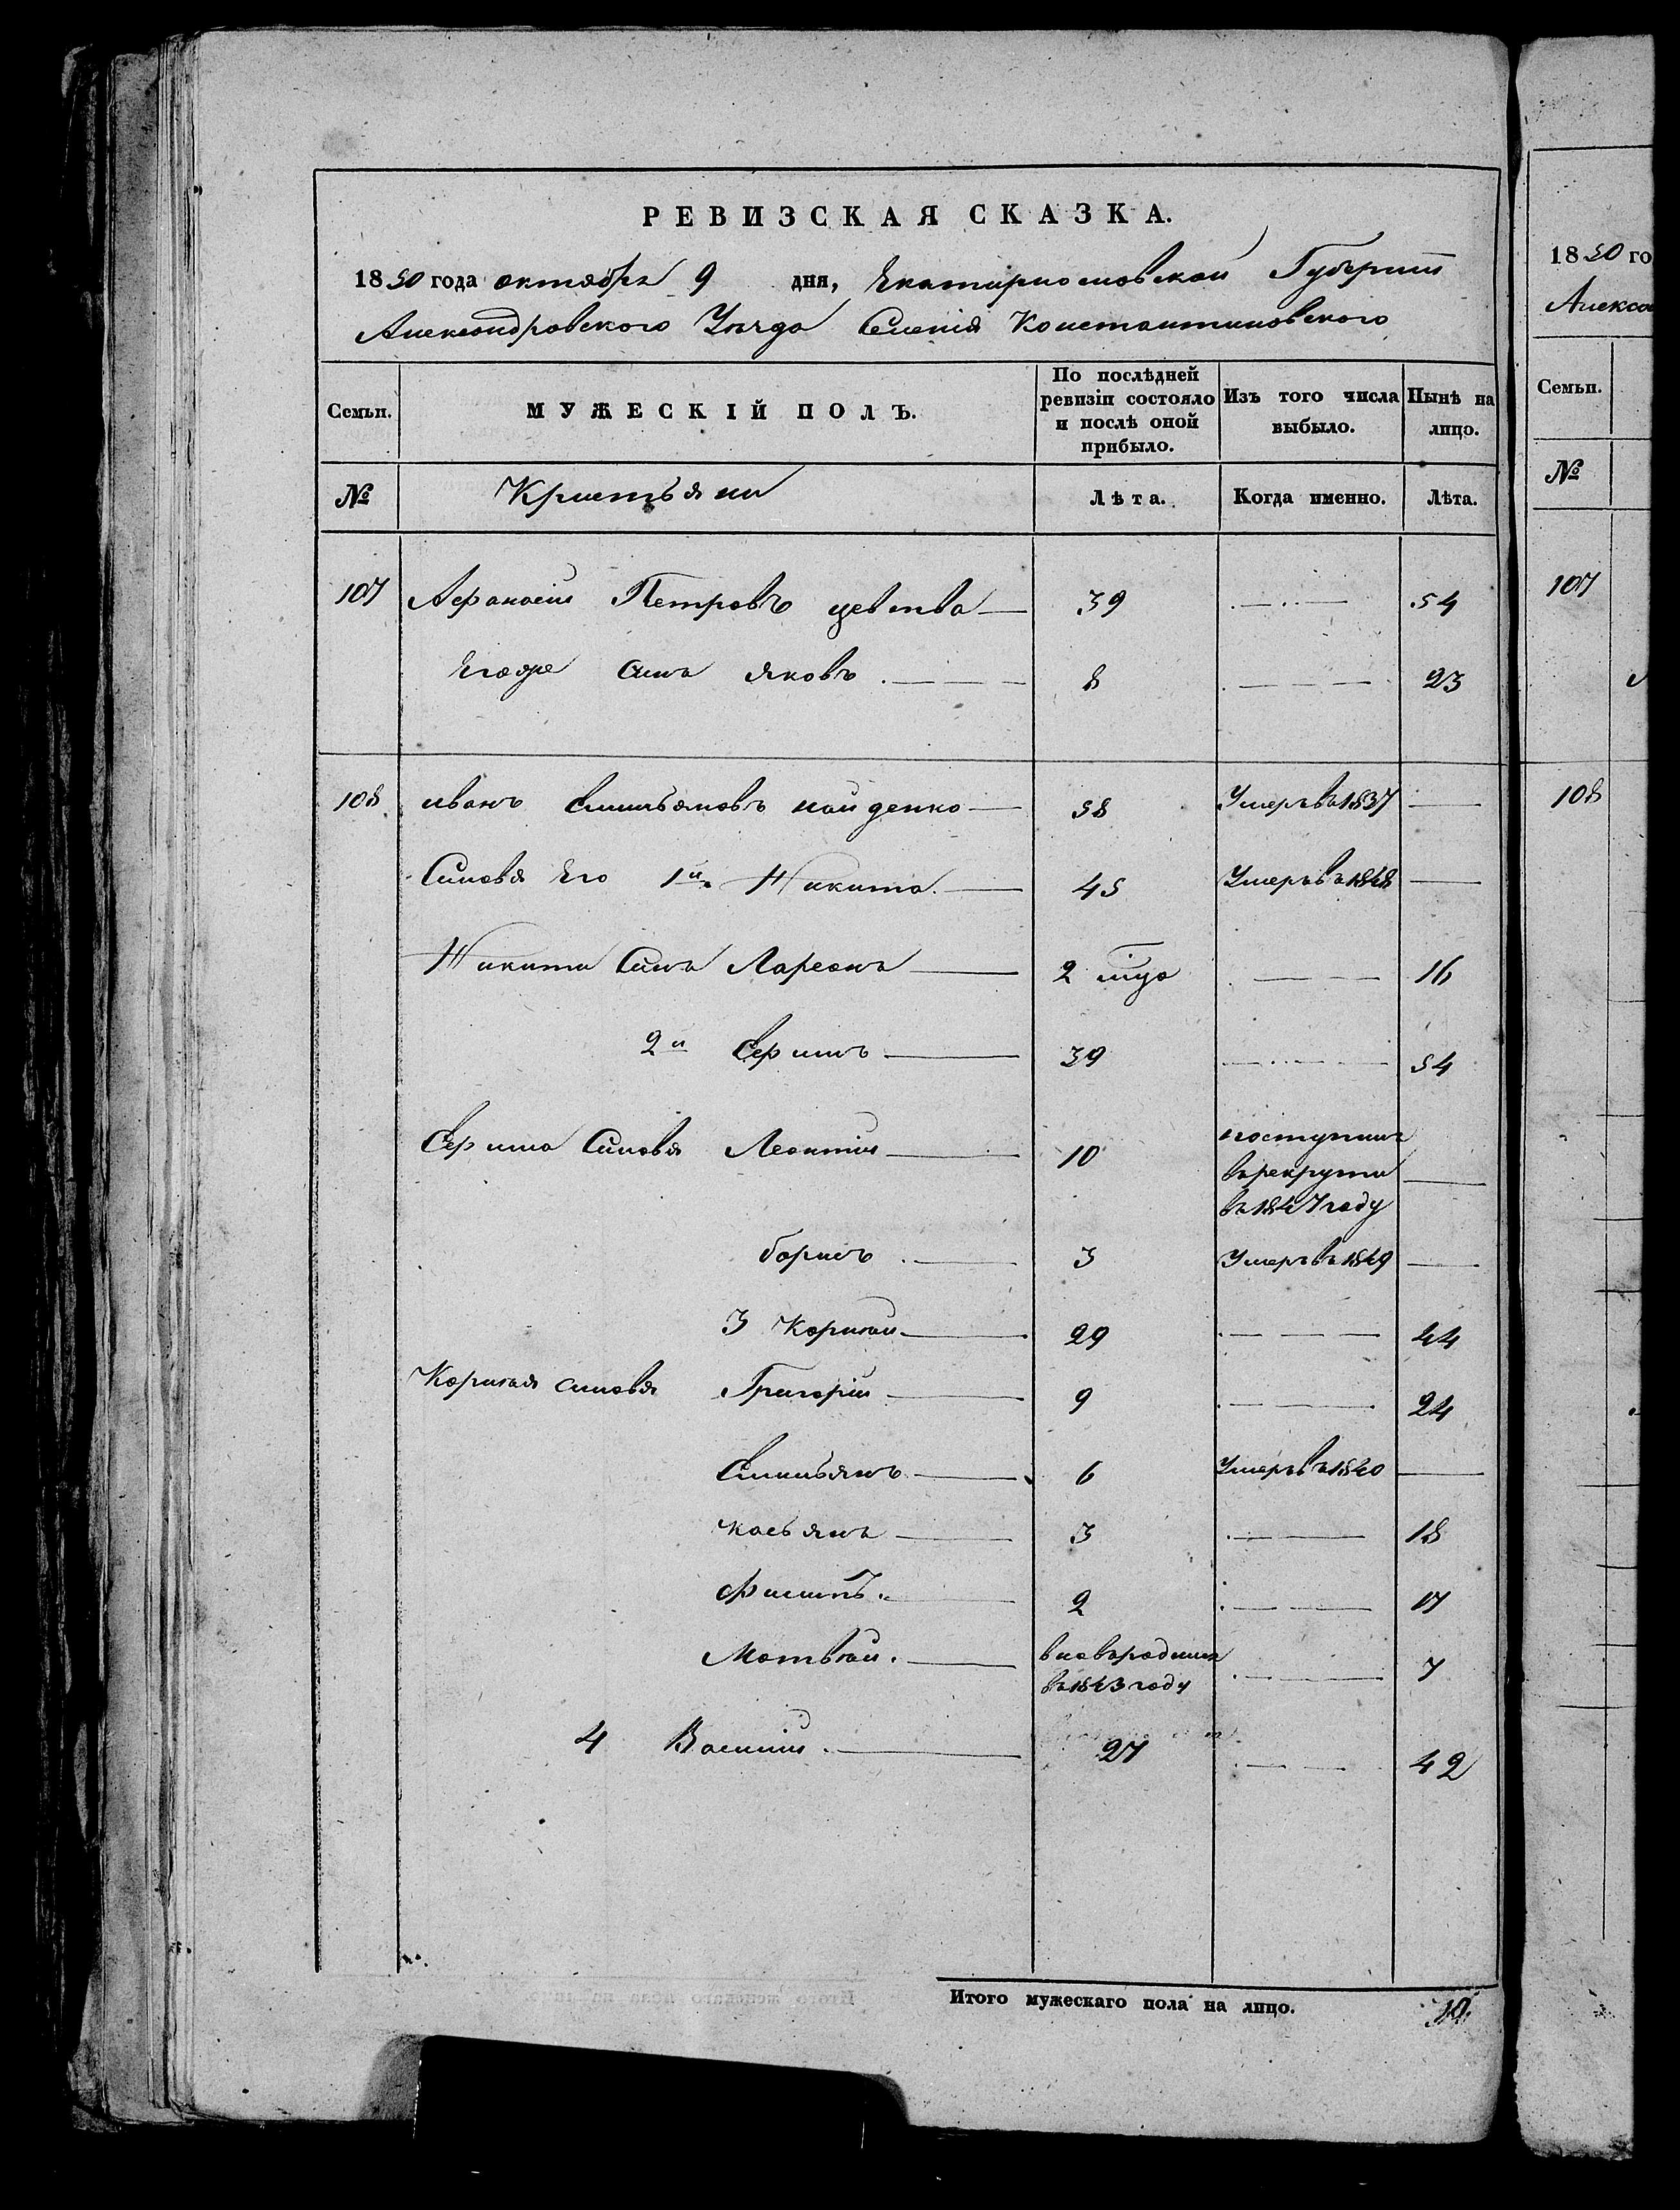 РЕВИЗСКАЯ СКАЗКА.
1850 года октября 9 дня, Екатириославской Губернии
Александровского Уезда Селения Константиновского
Семьи. МУЖЕСКІЙ ПОЛЪ. По послѣдней ревизіи состояло и послѣ оной прибыло. Изъ того числа выбыло. Нынѣ на лицо.
№ Лѣта. Когда именно. Лѣта.
107 Афанасий Петровъ 39 54
сынъ яковъ 8 23
108 иванъ Емильяновъ найденко 58 Умеръ въ 1837
Синовя Его 1й Никита 45 Умеръ въ 1848
Никити Синъ Лареонъ 2 16
2й Ефимъ 39 54
Ефима Синовя Леонтий 10 поступилъ
в рекрути
въ 1847 году
борисъ 3 Умеръ въ 1849
3 Корнѣй 29 44
Корнѣя синовя Григорий 9 24
Емильянъ 6 Умеръ въ 1840
касьянъ 3 18
Филипъ 2 17
Матвѣй вновъ родился
въ 1843 году 7
4 Василий 27 42
Итого мужескаго пола на лицо. 10
1850 го
Алекса
Семьи.
№
107
108